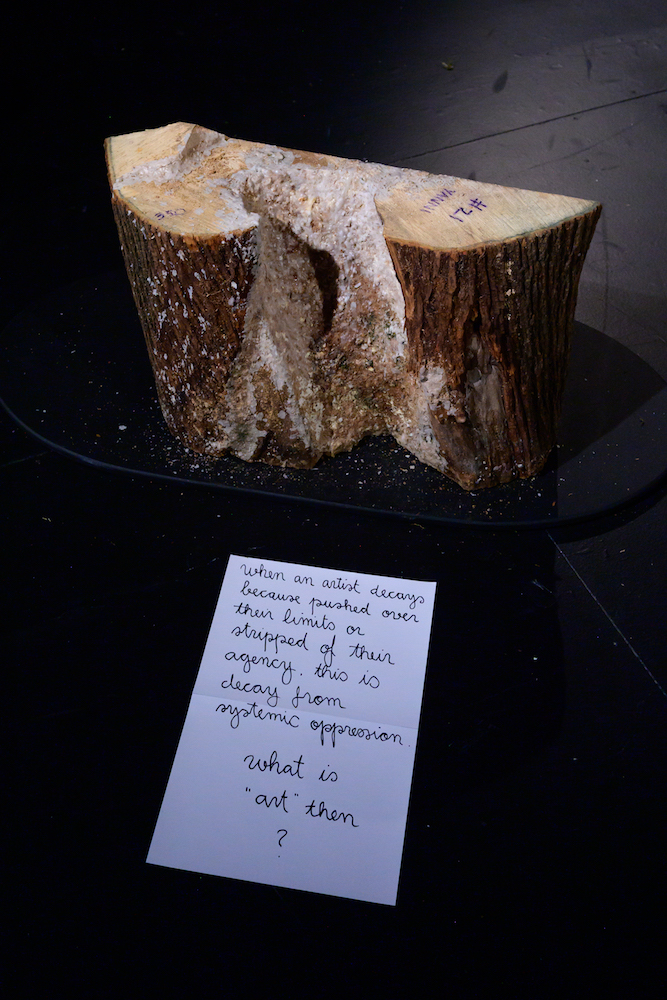 #21
when an artist decays
because pushed over
their limits or
stripped of their
agency. this is
decay from
systemic oppression.
what is
"art" then
?